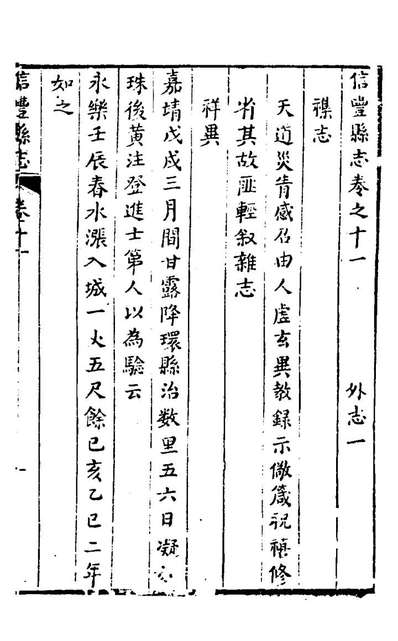 信豐縣志卷之十一 外志一
襍志
天道災眚感召由人虛玄異教錄示儆箴祝禧修
省其故匪輕叙雜志
祥異
嘉靖戊戌三月間甘露降環縣治数里五六日凝
珠後黄注登進士第人以為驗云
永樂壬辰春水漲入城一丈五尺餘已亥乙巳二年
如之
信豐縣志 卷十一